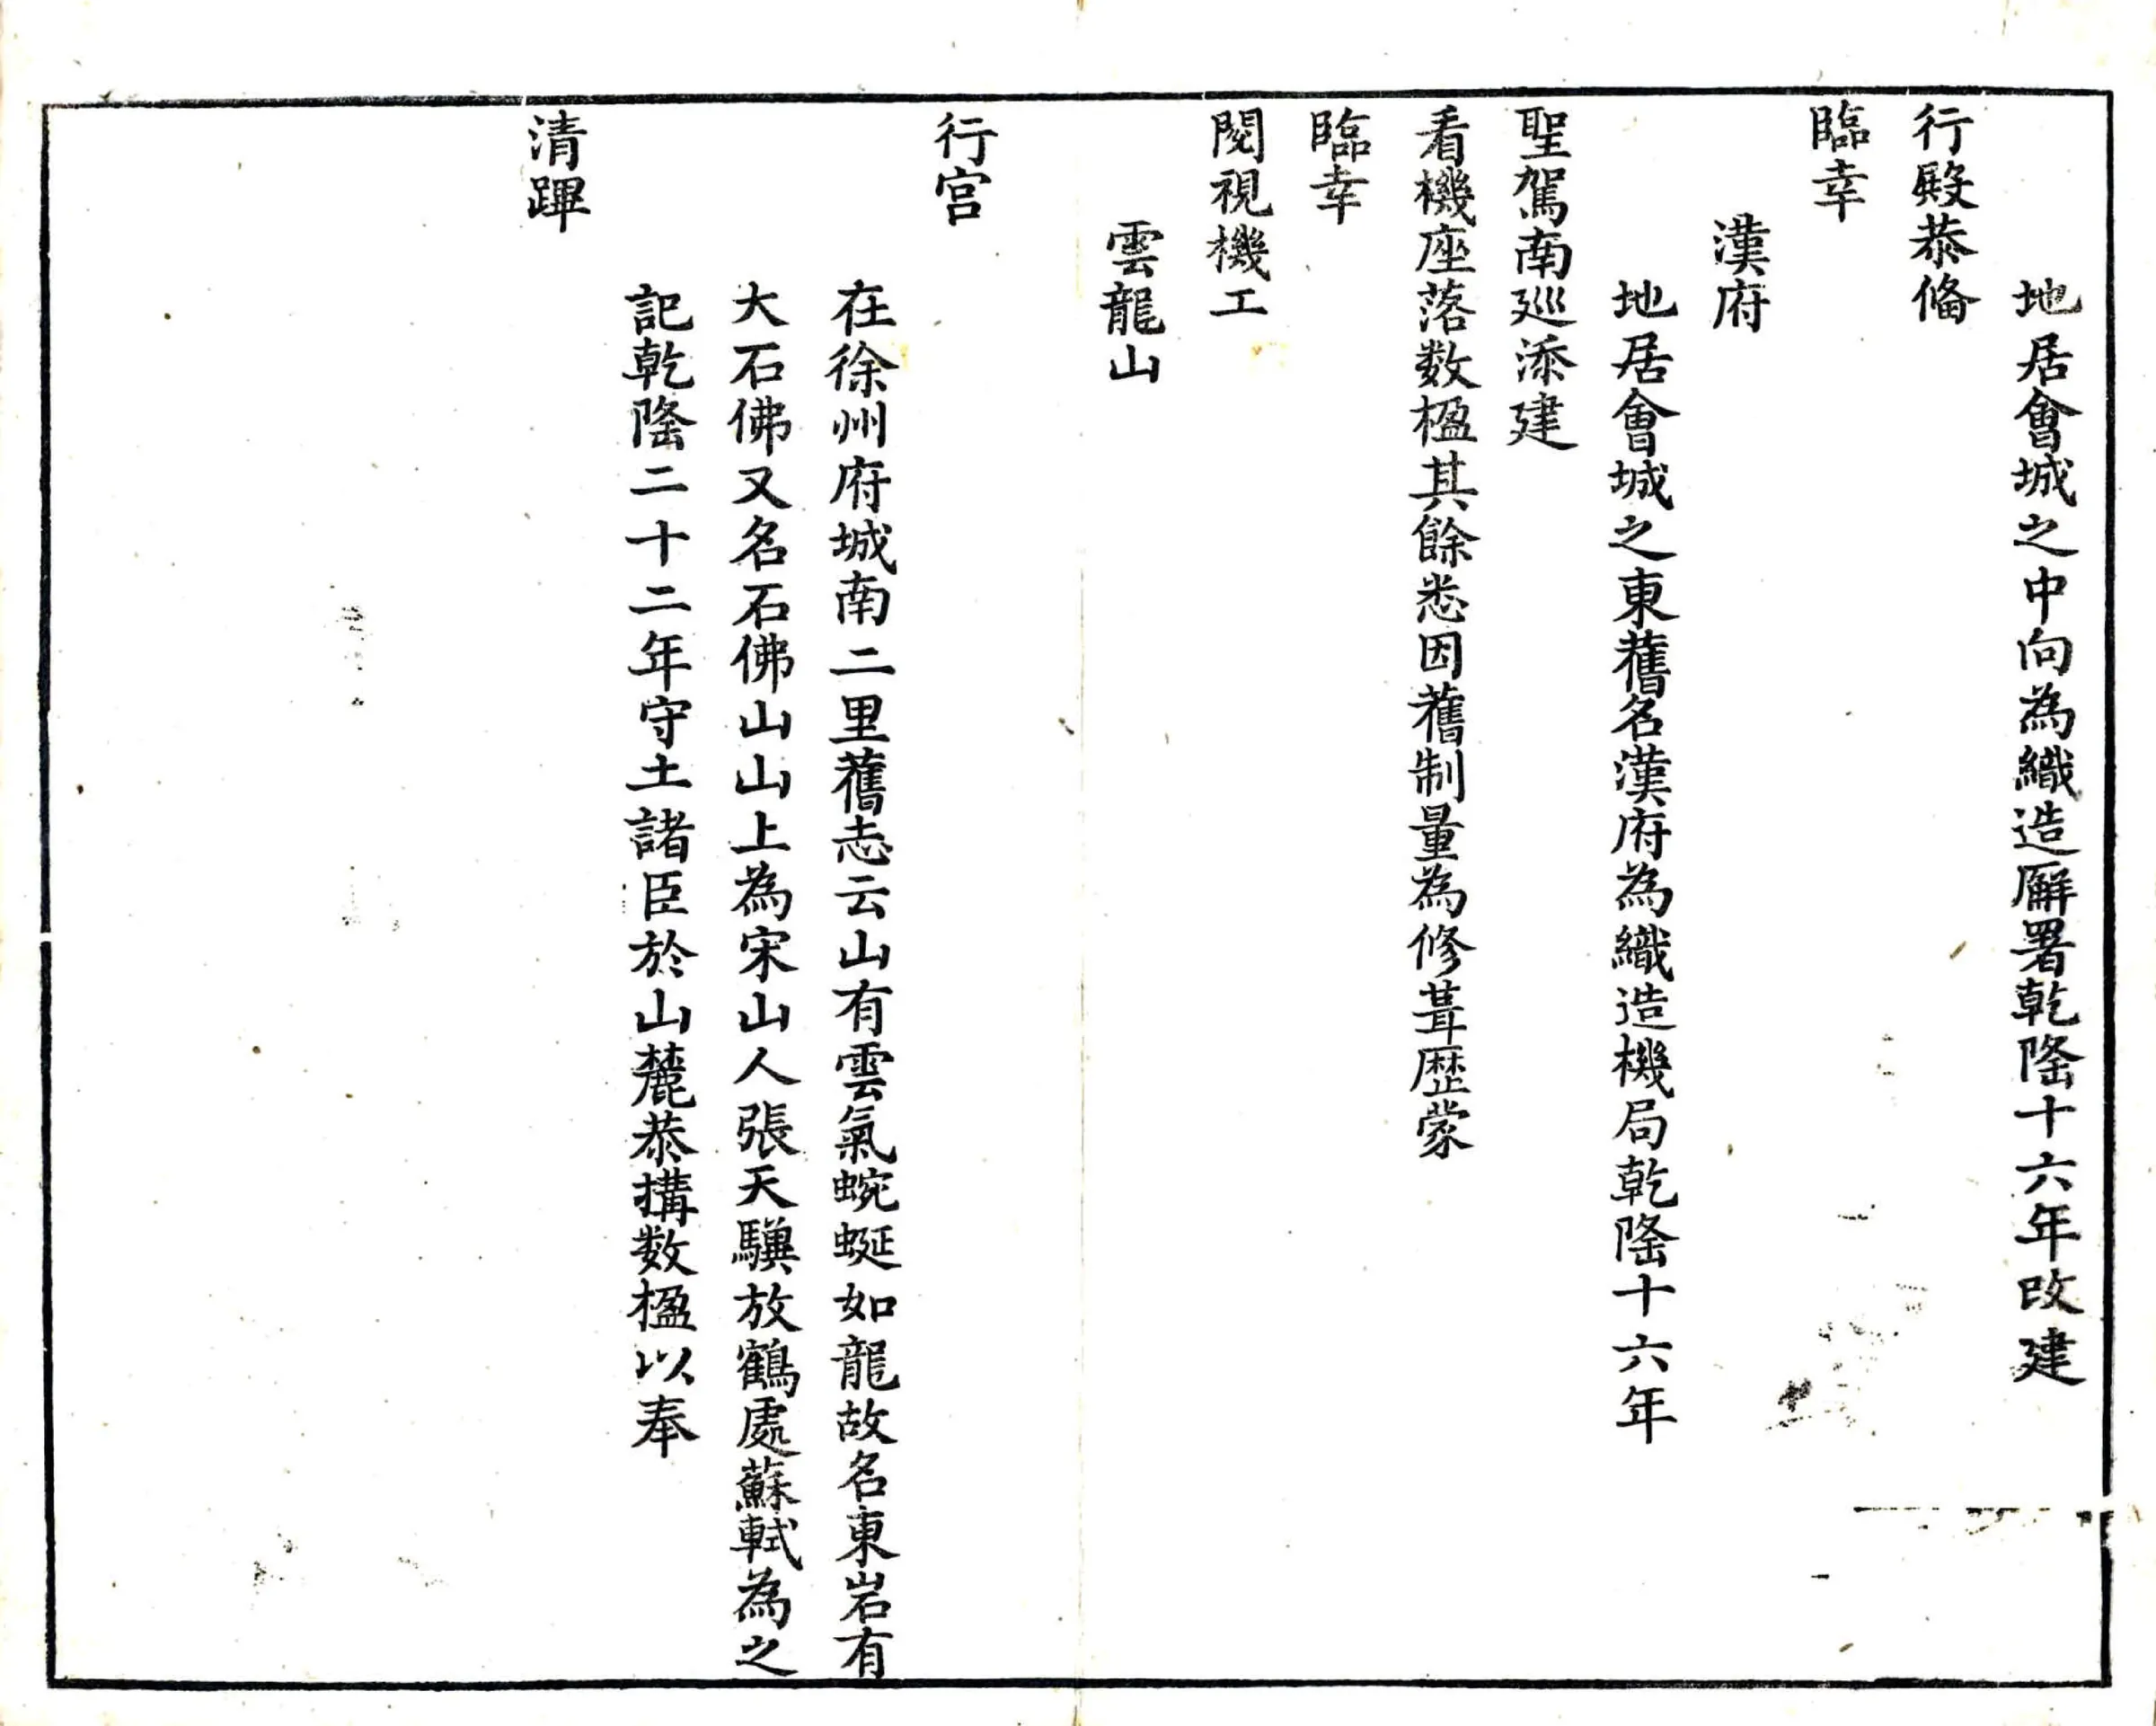 地居會城之中向為織造廨署乾隆十六年改建
行殿恭俻
臨幸
漢府
地居會城之東舊名漢府為織造機局乾隆十六年
聖駕南廵添建
看機座落数楹其餘悉因舊制量為修葺歷蒙
臨幸
閱視機工
雲龍山
行宮
在徐州府城南二里舊志云山有雲氣蜿蜒如龍故名東岩有
大石佛又名石佛山山上為宋山人張天驥放鶴處蘇軾為之
記乾隆二十二年守土諸臣於山麓恭搆数楹以奉
清蹕